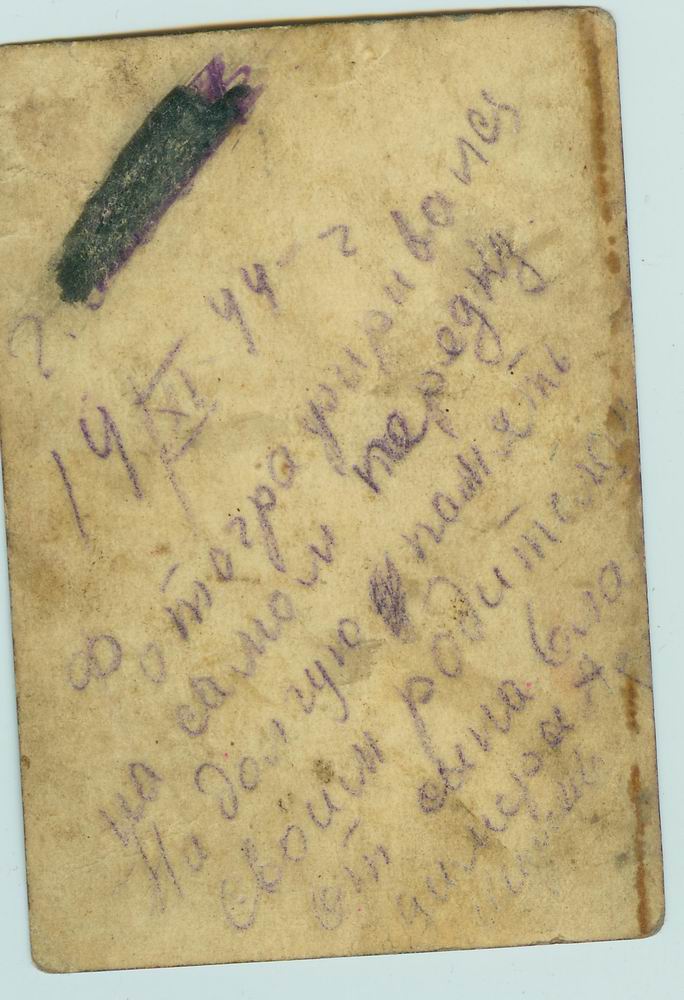 г.
14 XI 44-г
Фотографировался
на самом передку
На долгую память
своим родителям
от сына Вла
димира